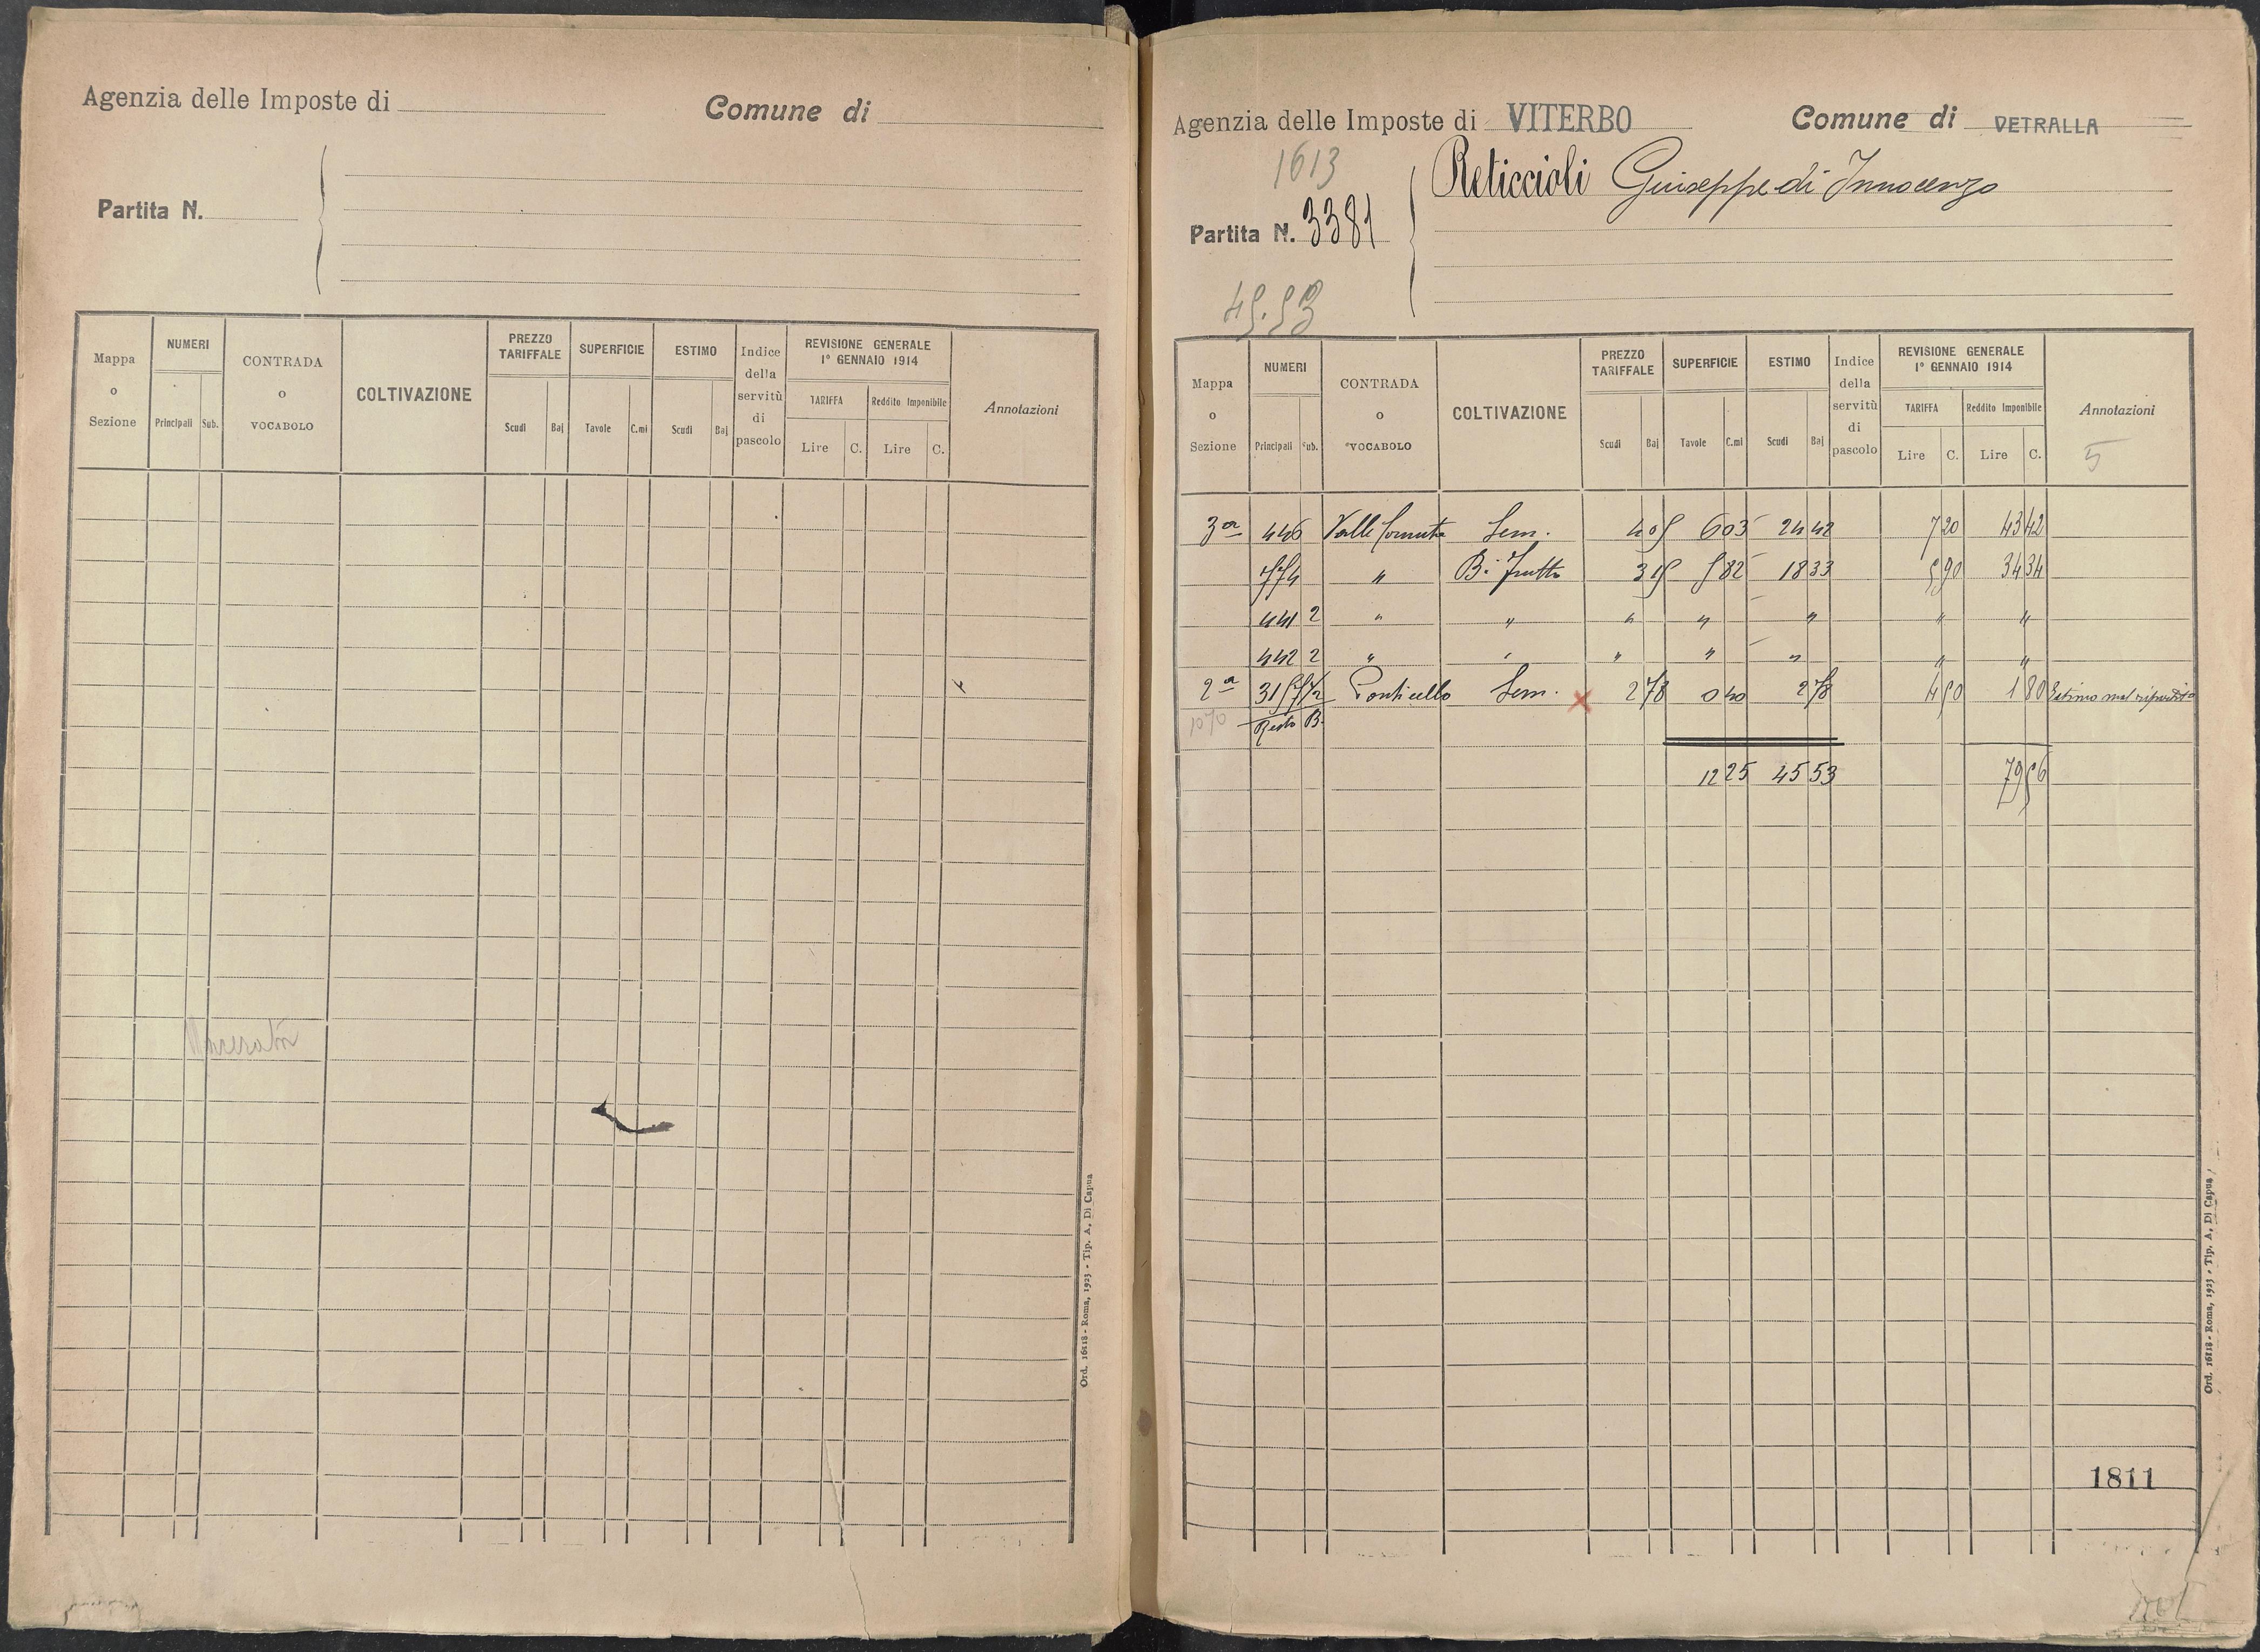 Agenzia delle Imposte di
Comune di
Partita N.
Mappa o Sezione
NUMERI
Principali Sub.
CONTRADA o VOCABOLO
COLTIVAZIONE
PREZZO TARIFFALE
Scudi Baj
SUPERFICIE
Tavole C.mi
ESTIMO
Scudi Baj
Indice della servitù di pascolo
REVISIONE GENERALE 1º GENNAIO 1914
TARIFFA Reddito Imponibile
Lire C. Lire C.
Annotazioni
Ord. 16118 - Roma, 1923 - Tip. A. Di Capua
Agenzia delle Imposte di VITERBO
Comune di VETRALLA
1613
Reticcioli Giuseppe di Innocenzo
Partita N. 3381
45.53
Mappa o Sezione
NUMERI
Principali Sub.
CONTRADA o VOCABOLO
COLTIVAZIONE
PREZZO TARIFFALE
Scudi Baj
SUPERFICIE
Tavole C.mi
ESTIMO
Scudi Baj
Indice della servitù di pascolo
REVISIONE GENERALE 1º GENNAIO 1914
TARIFFA Reddito Imponibile
Lire C. Lire C.
Annotazioni
5
3ª 446 Valle Cornuta Sem. 4 05 6 03 24 42 7 20 43 42
" B. frutto 3 15 5 82 18 33 5 90 34 34
441 2 " " " " " " "
442 2 " " " " " " "
2ª Ponticello Sem. x 2 78 0 40 2 78 4 50 1 80 Estimo mal ripartito
1070 Resto B.
12 25 45 53 79 56
1811
Ord. 16118 - Roma, 1923 - Tip. A. Di Capua